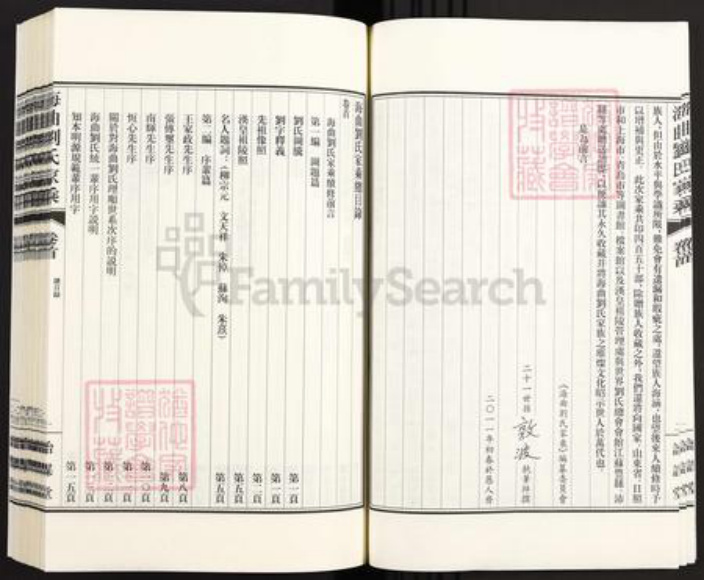 族人，但由於水平與學識所限，難免會有遺漏和瑕疵之處，還望族人海涵，也望後來人續修時予
以增補與更正。此次家乘共印四百五十部，除贈族人收藏之外，我們還將向國家、山東省、日照
市和上海市、青島市等圖書館、檔案館以及漢皇祖陵管理處與世界劉氏總會會館江蘇豐縣、沛
縣等處贈送諸部，以便讓其永久收藏并將海曲劉氏家族之璀燦文化昭示世人於萬代也。
是為前言。
《海曲劉氏家乘》編纂委員會
二十一世孫 敦波 執筆拜撰
二〇一一年初春於愚人齋
海曲劉氏家乘總目錄
卷首
海曲劉氏家乘續修前言
第一編 圖題篇
劉氏圖騰 第一頁
劉字釋義 第一頁
先祖像照 第二頁
漢皇祖陵照 第五頁
名人題詞：（柳宗元 文天祥 朱倬 蘇洵 朱熹） 第五頁
第二編 序輩篇
王家政先生序 第八頁
張傳璽先生序 第九頁
南輝先生序 第一〇頁
恆心先生序
關於對海曲劉氏理順世系次序的說明
海曲劉氏統一輩序用字說明
知本明源規範輩序用字 第一五頁
海曲劉氏家乘
卷首
總目錄
FamilySearch